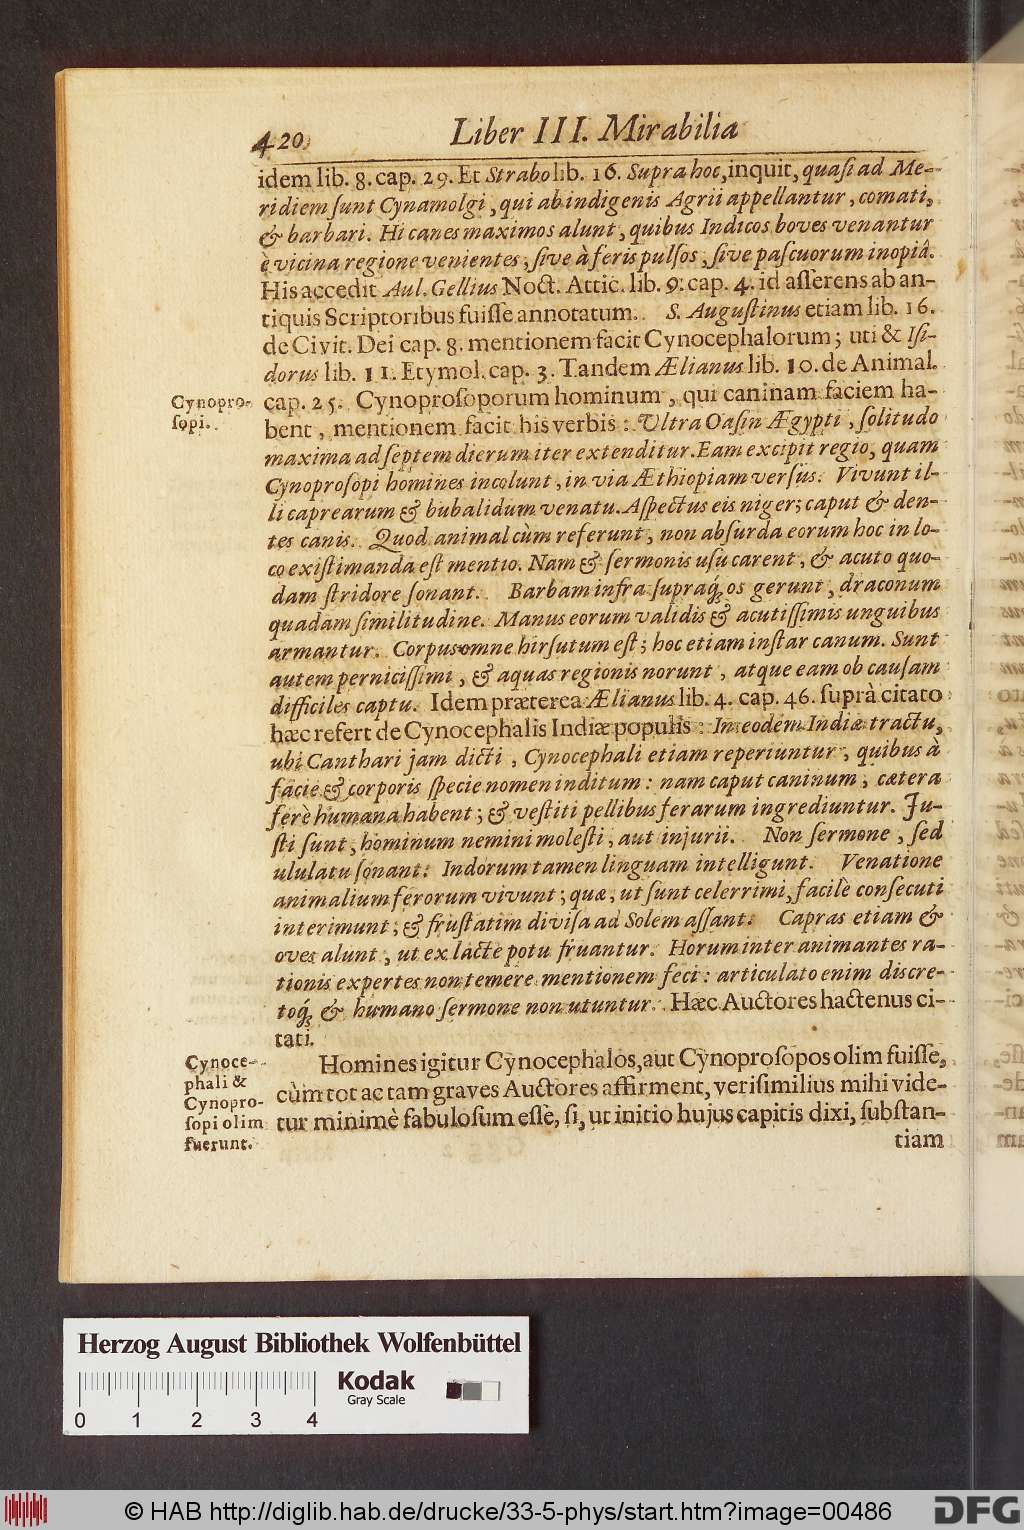 420 Liber III. Mirabilia
idem lib. 8. cap. 29. Et Strabo lib. 16. Supra hoc, inquit, quaſi ad Me-
ridiem ſunt Cynamolgi, qui ab indigenis Agrii appellantur, comati,
& barbari. Hi canes maximos alunt, quibus Indicos boves venantur
è vicina regione venientes, ſive à feris pulſos, ſive paſcuorum inopiâ.
His accedit Aul. Gellius Noct. Attic. lib. 9. cap. 4. id aſſerens ab an-
tiquis Scriptoribus fuiſſe annotatum. S. Auguſtinus etiam lib. 16.
de Civit. Dei cap. 8. mentionem facit Cynocephalorum; uti & Iſi-
dorus lib. 11. Etymol. cap. 3. Tandem Ælianus lib. 10. de Animal.
Cynopro-
ſopi.
cap. 25. Cynoproſoporum hominum, qui caninam faciem ha-
bent, mentionem facit his verbis: Ultra Oaſin Ægypti, ſolitudo
maxima ad ſeptem dierum iter extenditur. Eam excipit regio, quam
Cynoproſopi homines incolunt, in via Æthiopiam verſus. Vivunt il-
li caprearum & bubalidum venatu. Aſpectus eis niger; caput & den-
tes canis. Quod animal cùm referunt, non abſurda eorum hoc in lo-
co exiſtimanda eſt mentio. Nam & ſermonis uſu carent, & acuto quo-
dam ſtridore ſonant. Barbam infra ſupraq́; os gerunt, draconum
quadam ſimilitudine. Manus eorum validis & acutiſſimis unguibus
armantur. Corpus omne hirſutum eſt; hoc etiam inſtar canum. Sunt
autem perniciſſimi, & aquas regionis norunt, atque eam ob cauſam
difficiles captu. Idem præterea Ælianus lib. 4. cap. 46. ſuprà citato
hæc refert de Cynocephalis Indiæ populis: In eodem Indiæ tractu,
ubi Canthari jam dicti, Cynocephali etiam reperiuntur, quibus à
facie & corporis ſpecie nomen inditum: nam caput caninum, cætera
ferè humana habent; & veſtiti pellibus ferarum ingrediuntur. Ju-
ſti ſunt, hominum nemini moleſti, aut injurii. Non ſermone, ſed
ululatu ſonant: Indorum tamen linguam intelligunt. Venatione
animalium ferorum vivunt; quæ, ut ſunt celerrimi, facilè conſecuti
interimunt; & fruſtatim diviſa ad Solem aſſant. Capras etiam &
oves alunt, ut ex lacte potu fruantur. Horum inter animantes ra-
tionis expertes non temere mentionem feci: articulato enim discre-
toq́; & humano ſermone non utuntur. Hæc Auctores hactenus ci-
tati.
Cynoce-
phali &
Cynopro-
ſopi olim
fuerunt.
Homines igitur Cynocephalos, aut Cynoproſopos olim fuiſſe,
cùm tot ac tam graves Auctores affirment, veriſimilius mihi vide-
tur minimè fabuloſum eſſe, ſi, ut initio hujus capitis dixi, ſubſtan-
tiam
Herzog August Bibliothek Wolfenbüttel
Kodak
Gray Scale
0 1 2 3 4
© HAB http://diglib.hab.de/drucke/33-5-phys/start.htm?image=00486
DFG